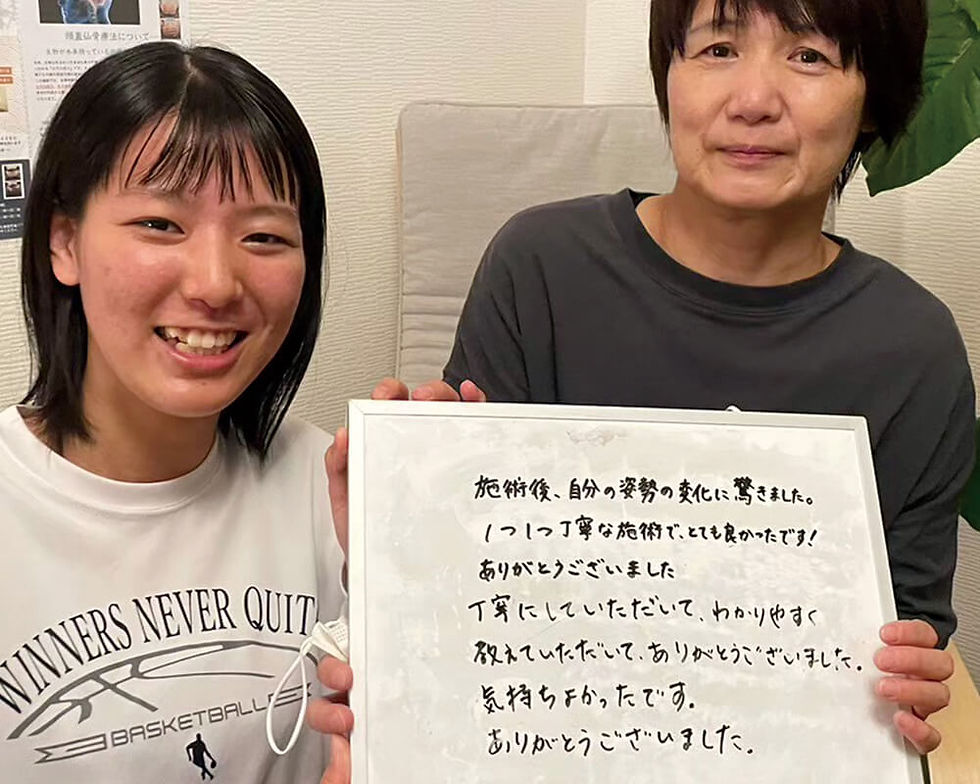 頭蓋仙骨療法について
施術後、自分の姿勢の変化に驚きました。
1つ1つ丁寧な施術で、とても良かったです!
ありがとうございました
丁寧にしていただいて、わかりやすく
教えていただいて、ありがとうございました。
気持ちよかったです。
ありがとうございました。
WINNERS NEVER QUIT
BASKETBALL